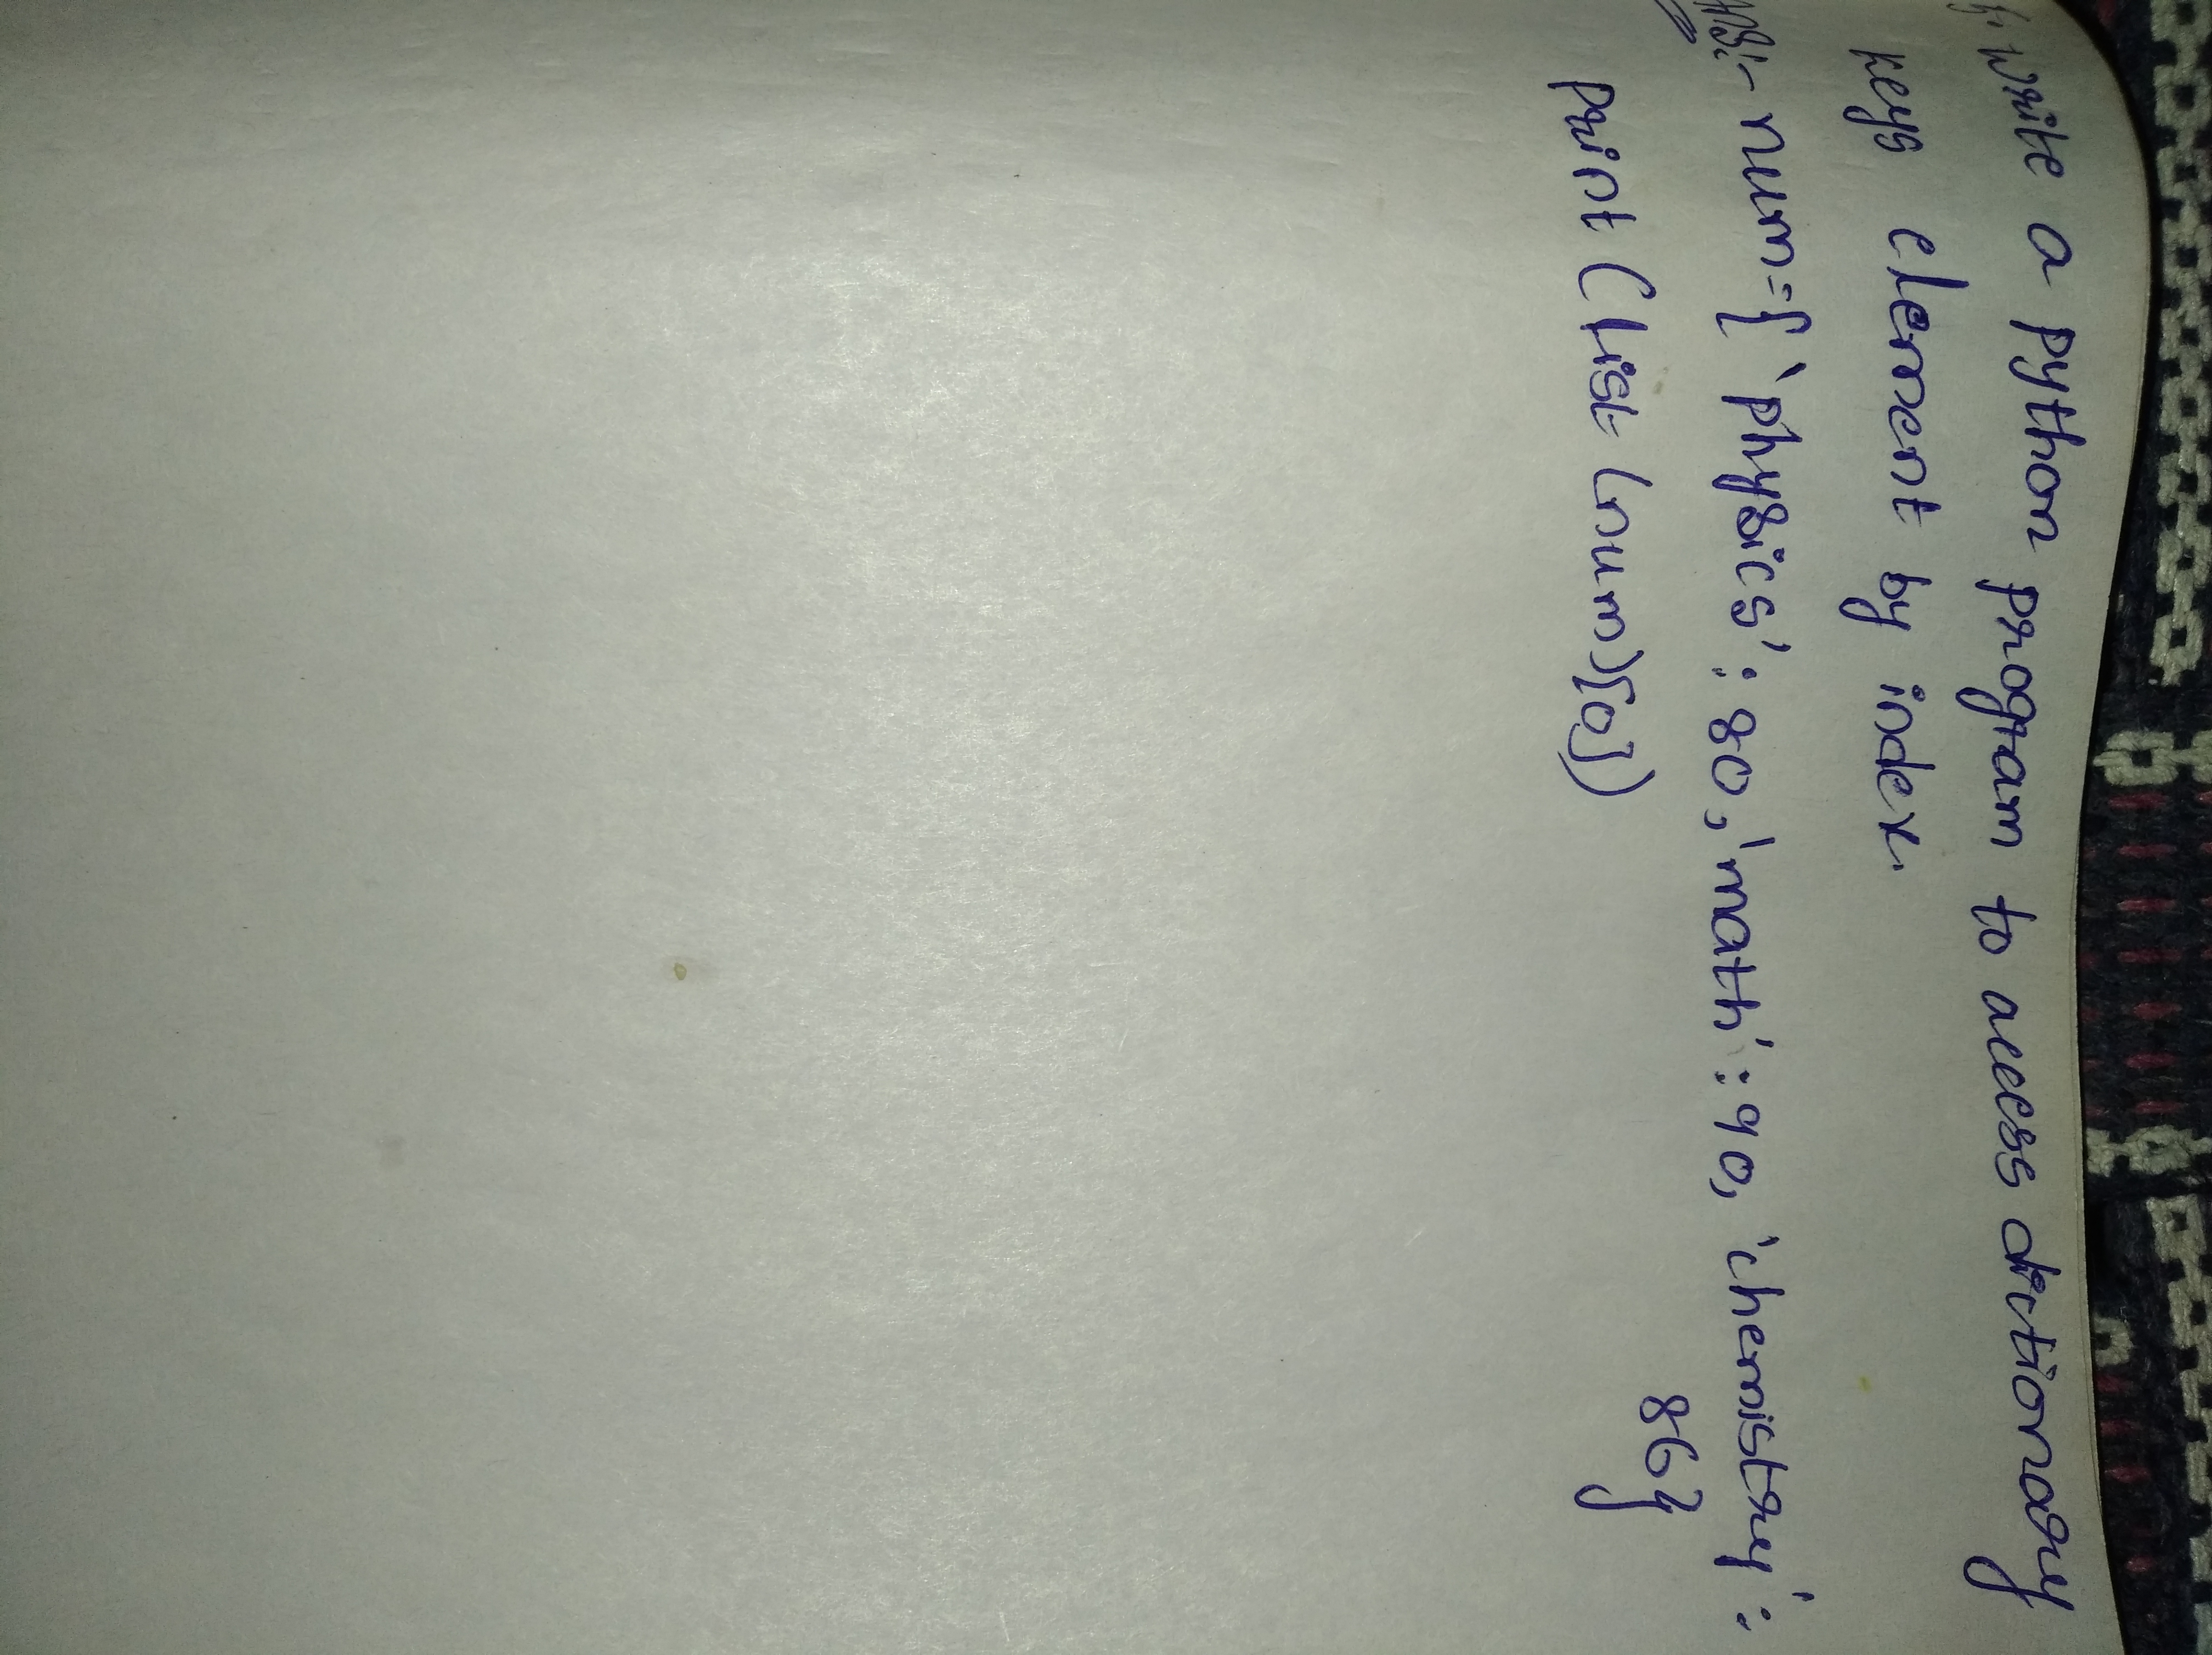 Write a python program to access dictionary
keys element by index.
Ans:- num={'physics': 80,'math': 90, 'chemistry':
86}
print (list (num)[0])